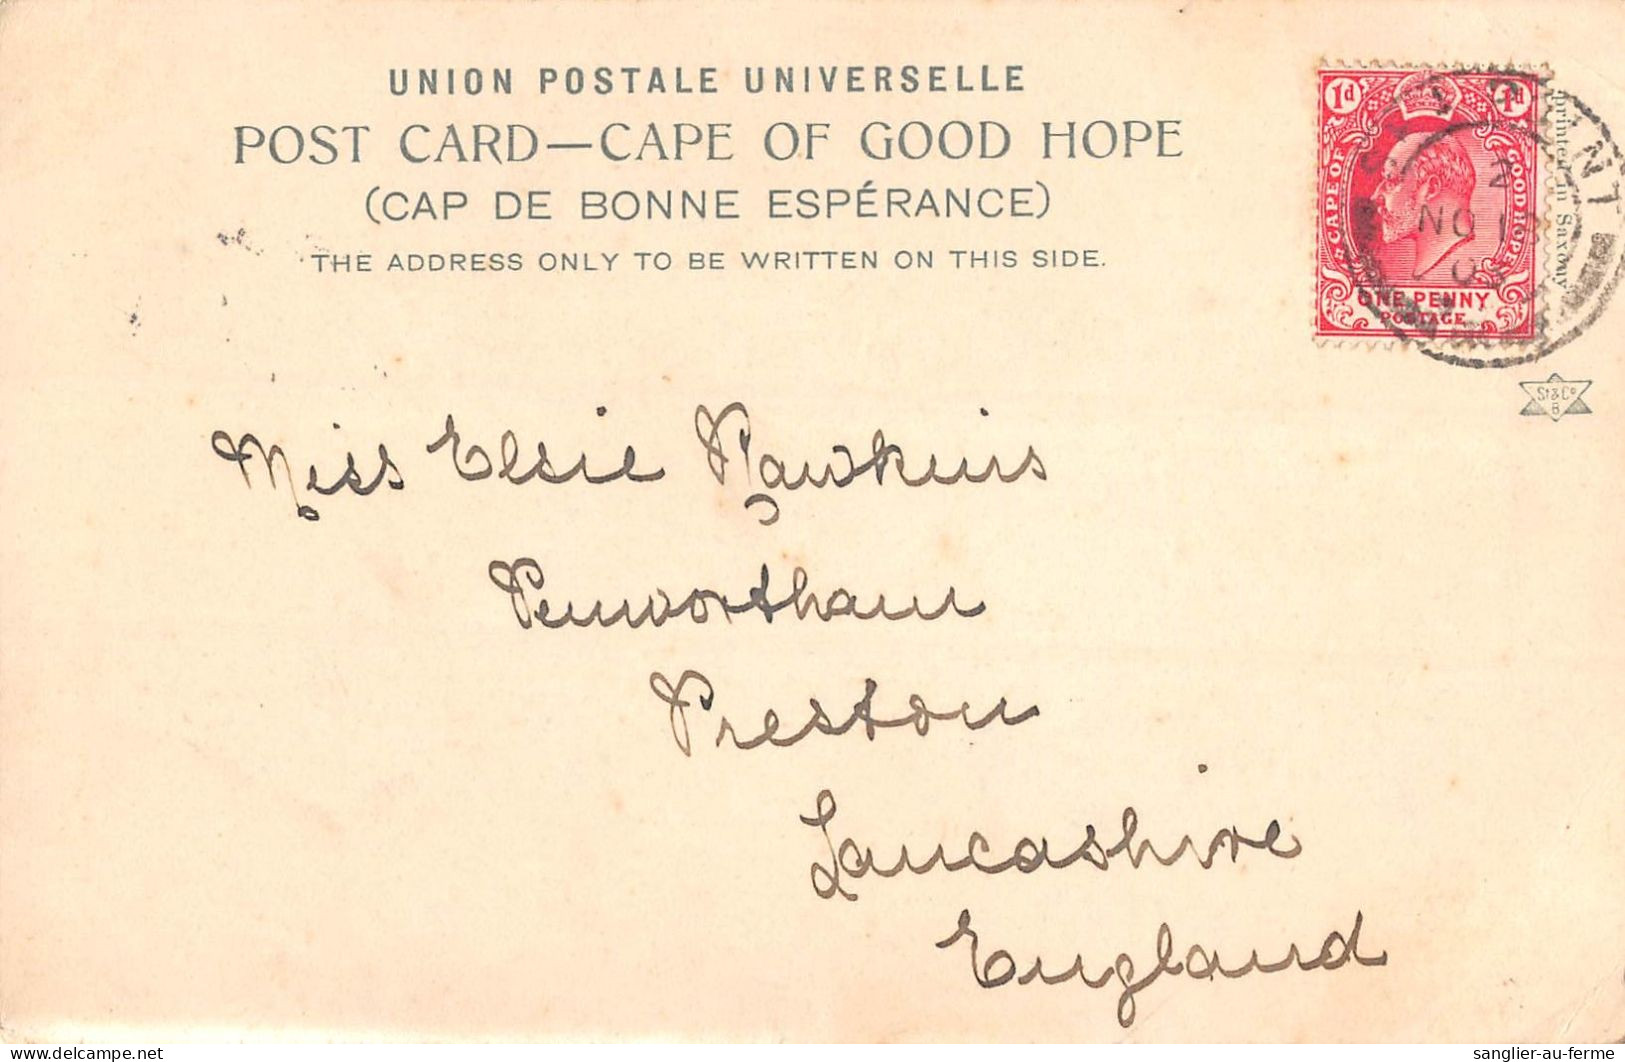 UNION POSTALE UNIVERSELLE
POST CARD—CAPE OF GOOD HOPE
(CAP DE BONNE ESPÉRANCE)
THE ADDRESS ONLY TO BE WRITTEN ON THIS SIDE.
1d 1d
CAPE OF GOOD HOPE
ONE PENNY
POSTAGE
NO 18
printed in Saxony
St & Co
B
Miss Elsie Hawkins
Penwortham
Preston
Lancashire
England
delcampe.net
sanglier-au-ferme